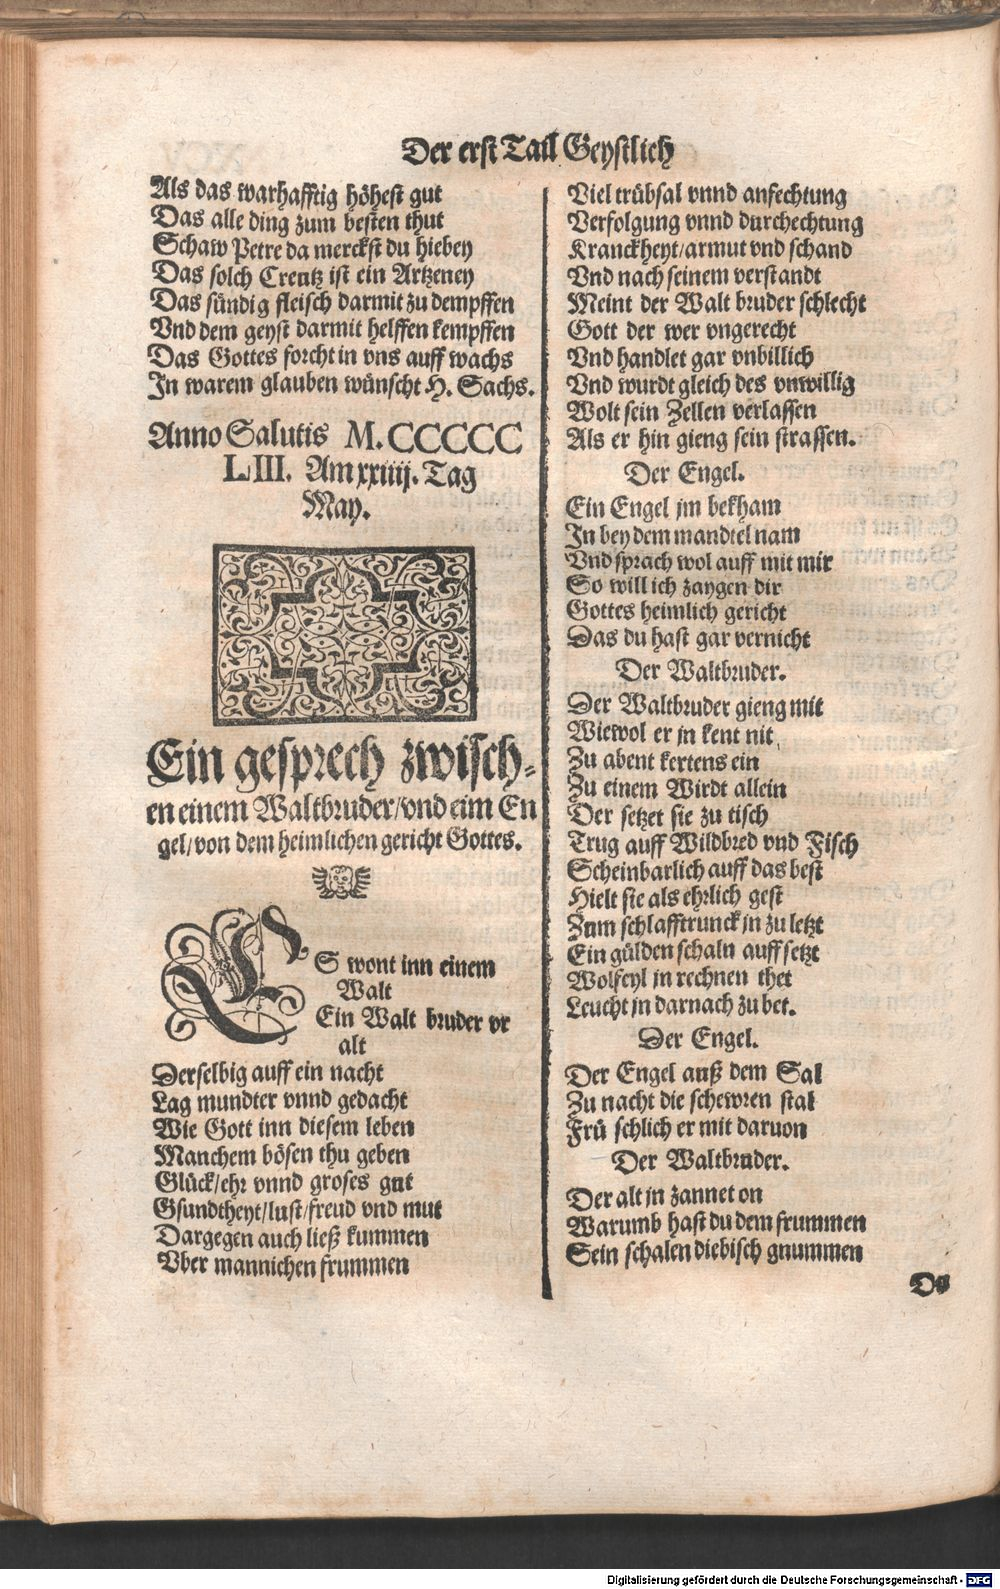 Der erst Tail Geystlich
Als das warhafftig höhest gut
Das alle ding zum besten thut
Schaw Petre da merckst du hiebey
Das solch Creutz ist ein Artzeney
Das sündig fleisch darmit zu dempffen
Vnd dem geyst darmit helffen kempffen
Das Gottes forcht in vns auff wachs
In warem glauben wünscht H. Sachs.
Anno Salutis M. CCCCC
LIII. Am xxiiij. Tag
May.
Ein gesprech zwisch-
en einem Waltbruder/vnd eim En
gel/von dem heimlichen gericht Gottes.
ES wont inn einem
Walt
Ein Walt bruder vr
alt
Derselbig auff ein nacht
Lag mundter vnnd gedacht
Wie Gott inn diesem leben
Manchem bösen thu geben
Glück/ehr vnnd groses gut
Gsundtheyt/lust/freud vnd mut
Dargegen auch ließ kummen
Vber mannichen frummen
Viel trübsal vnnd anfechtung
Verfolgung vnnd durchechtung
Kranckheyt/armut vnd schand
Vnd nach seinem verstandt
Meint der Walt bruder schlecht
Gott der wer vngerecht
Vnd handlet gar vnbillich
Vnd wurdt gleich des vnwillig
Wolt sein Zellen verlassen
Als er hin gieng sein strassen.
Der Engel.
Ein Engel jm bekham
In bey dem mandtel nam
Vnd sprach wol auff mit mir
So will ich zaygen dir
Gottes heimlich gericht
Das du hast gar vernicht
Der Waltbruder.
Der Waltbruder gieng mit
Wiewol er jn kent nit
Zu abent kertens ein
Zu einem Wirdt allein
Der setzet sie zu tisch
Trug auff Wildbred vnd Fisch
Scheinbarlich auff das best
Hielt sie als ehrlich gest
Zum schlafftrunck jn zu letzt
Ein gülden schaln auff setzt
Wolfeyl in rechnen thet
Leucht in darnach zu bet.
Der Engel.
Der Engel auß dem Sal
Zu nacht die schewren stal
Frü schlich er mit daruon
Der Waltbruder.
Der alt in zannet on
Warumb hast du dem frummen
Sein schalen diebisch gnummen
Digitalisierung gefördert durch die Deutsche Forschungsgemeinschaft - DFG